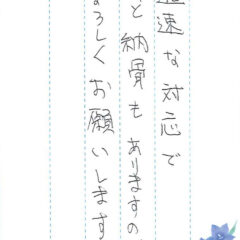 速な対応で
と納骨もありますの
ろしくお願いします